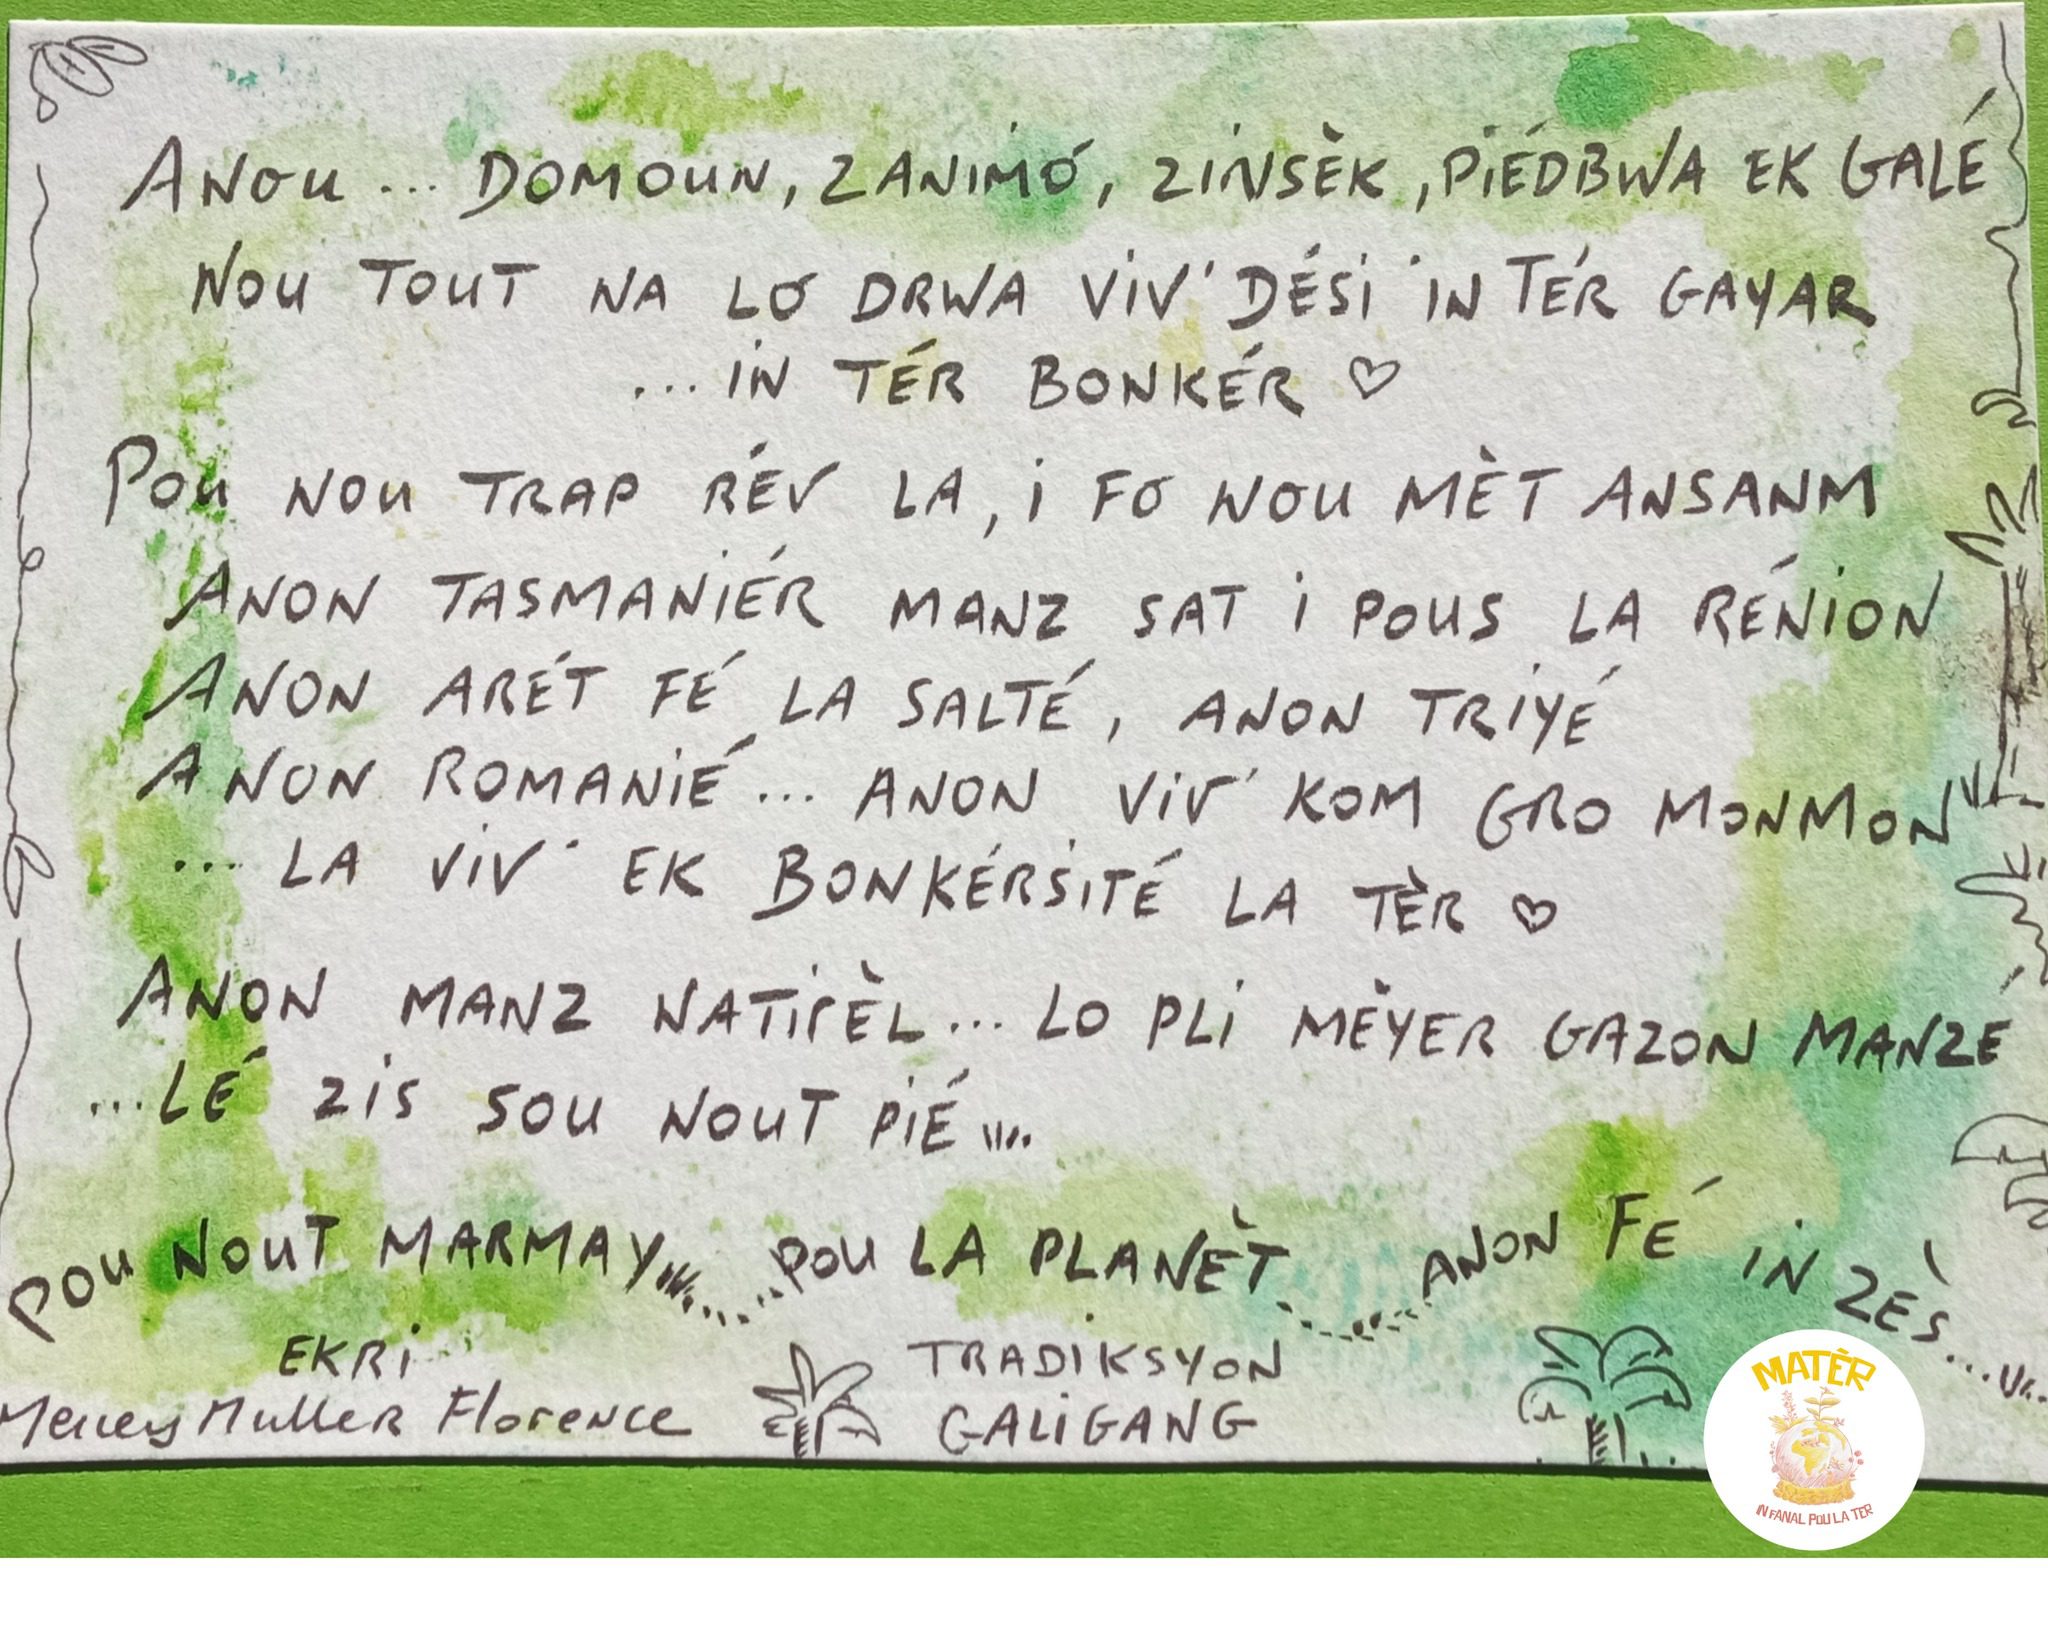 ANOU... DOMOUN, ZANIMÓ, ZINSÈK, PIÉDBWA EK GALÉ
NOU TOUT NA LO DRWA VIV' DÉSI IN TÉR GAYAR
...IN TÉR BONKÉR ♡
POU NOU TRAP RÉV LA, I FO NOU MÈT ANSANM
ANON TASMANIÉR MANZ SAT I POUS LA RÉNION
ANON ARÉT FÉ LA SALTÉ, ANON TRIYÉ
ANON ROMANIÉ... ANON VIV' KOM GRO MONMON
... LA VIV' EK BONKÉRSITÉ LA TÈR ♡
ANON MANZ NATIRÈL... LO PLI MÈYER GAZON MANZÉ
...LÉ ZIS SOU NOUT PIÉ....
POU NOUT MARMAY........POU LA PLANÈT........ANON FÉ IN ZÈS...
EKRI
MULLER FLORENCE
TRADIKSYON
GALIGANG
MATÈR
IN FANAL POU LA TER